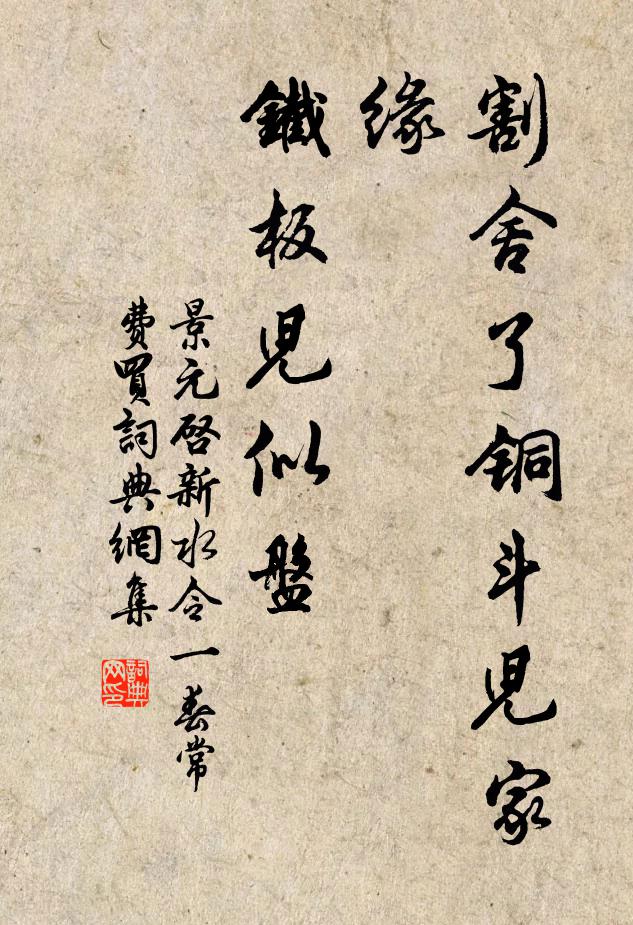 割舍了铜斗兒家
緣
鐵板兒似盤
景元啓新水令一春常
費買詞典網集
詞典网印